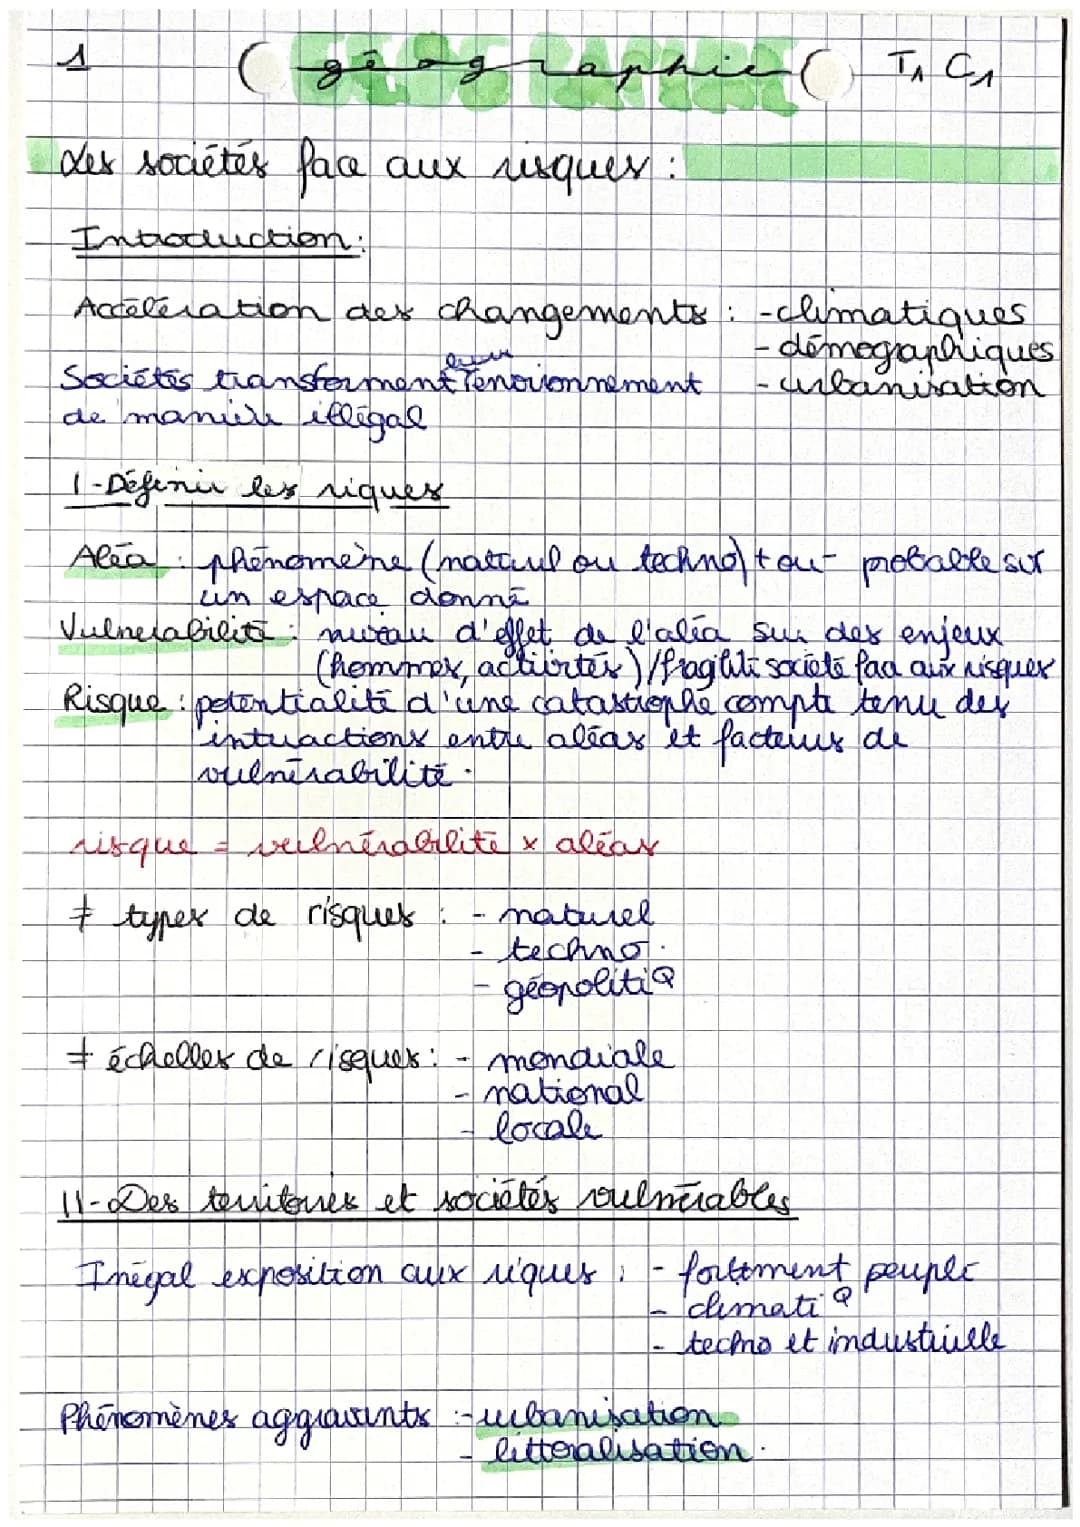 1 géographie T1 C1
Les sociétés face aux risques :
Introduction :
Accélération des changements : - climatiques
- démographiques
Sociétés transforment leur l'environnement - urbanisation
de manière illégal
I - Définir les riques
Aléa : phénomène (naturel ou techno) + ou - probable sur
un espace donné
Vulnérabilité : niveau d'effet de l'aléa sur des enjeux
(hommes, activités) / fragilité société face aux risques
Risque : potentialité d'une catastrophe compte tenu des
interactions entre aléas et facteurs de
vulnérabilité.
risque = vulnérabilité x aléas
≠ types de risques : - naturel
- techno.
- géopolitiQ
≠ échelles de risques : - mondiale
- national
- locale
II - Des territoires et sociétés vulnérables
Inégal exposition aux riques : - fortement peuplé
- climatiQ
- techno et industrielle
Phénomènes aggravants : - urbanisation
- littoralisation.